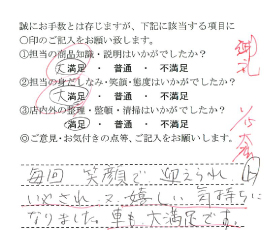 誠にお手数とは存じますが、下記に該当する項目に
〇印のご記入をお願い致します。
①担当の商品知識・説明はいかがでしたか？
大満足 ・ 普通 ・ 不満足
②担当の身だしなみ・笑顔・態度はいかがでしたか？
大満足 ・ 普通 ・ 不満足
③店内外の整理・整頓・清掃はいかがでしたか？
満足 ・ 普通 ・ 不満足
◎ご意見・お気付きの点等、ご記入をお願いします。
毎回 笑顔で 迎えられ、
嬉しい 気持ちに
なりました。車も大満足です。
御礼